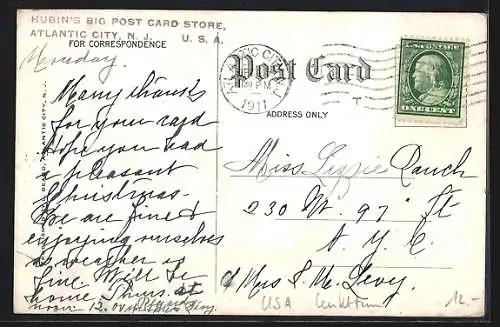 HUBIN'S BIG POST CARD STORE,
ATLANTIC CITY, N. J. U. S. A.
FOR CORRESPONDENCE
Monday
Many thanks
for your card
Hope you had
a pleasant
Christmas-
We are fine &
enjoying ourselves
as weather is
fine. Will be
home Thurs. at
noon
Post Card
ADDRESS ONLY
ATLANTIC CITY, N.J.
PM
1911
U.S. POSTAGE
ONE CENT
Miss Lizzie Rauch
230 W. 97" St
N. Y. C.
c/o Mrs S. M. Levy.
USA
12.-
ATLANTIC CITY, N. J.